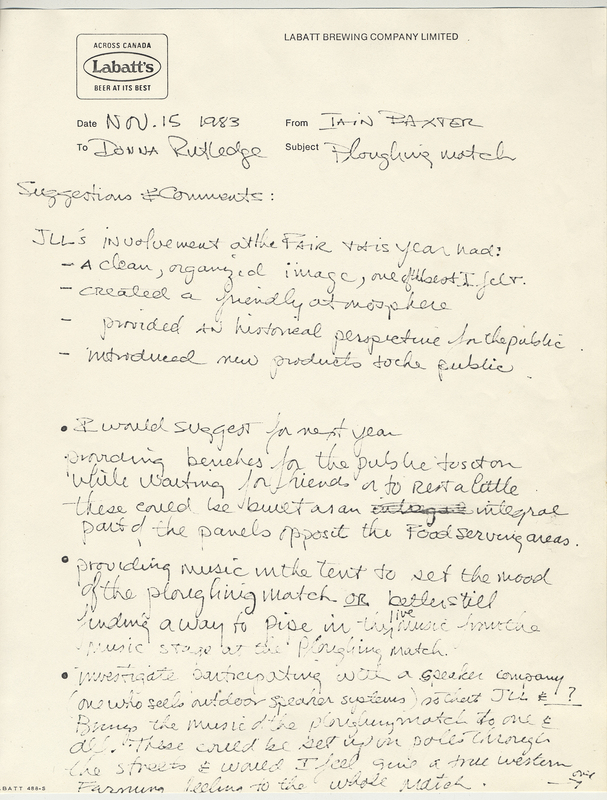 ACROSS CANADA
Labatt's
BEER AT ITS BEST
LABATT BREWING COMPANY LIMITED
Date NOV. 15 1983 From IAIN BAXTER
To DONNA Rutledge Subject Ploughing match
Suggestions & Comments:
JLL's involvement at the FAIR this year had:
- A clean, organized image, one of the best I felt.
- created a friendly atmosphere
- provided an historical perspective for the public.
- introduced new products to the public.
• I would suggest for next year
providing benches for the public to sit on
while waiting for friends or to rest a little
these could be built as an integral
part of the panels opposit the Food serving areas.
• providing music in the tent to set the mood
of the ploughing match OR better still
finding a way to pipe in the live music from the
music stage at the Ploughing match.
• investigate participating with a speaker company
(one who sells outdoor speaker systems) so that JLL & ?
Brings the music of the ploughing match to one &
all." These could be set up on poles through
the streets & would I feel give a true western
Farming feeling to the whole match. - over
LABATT 488-3